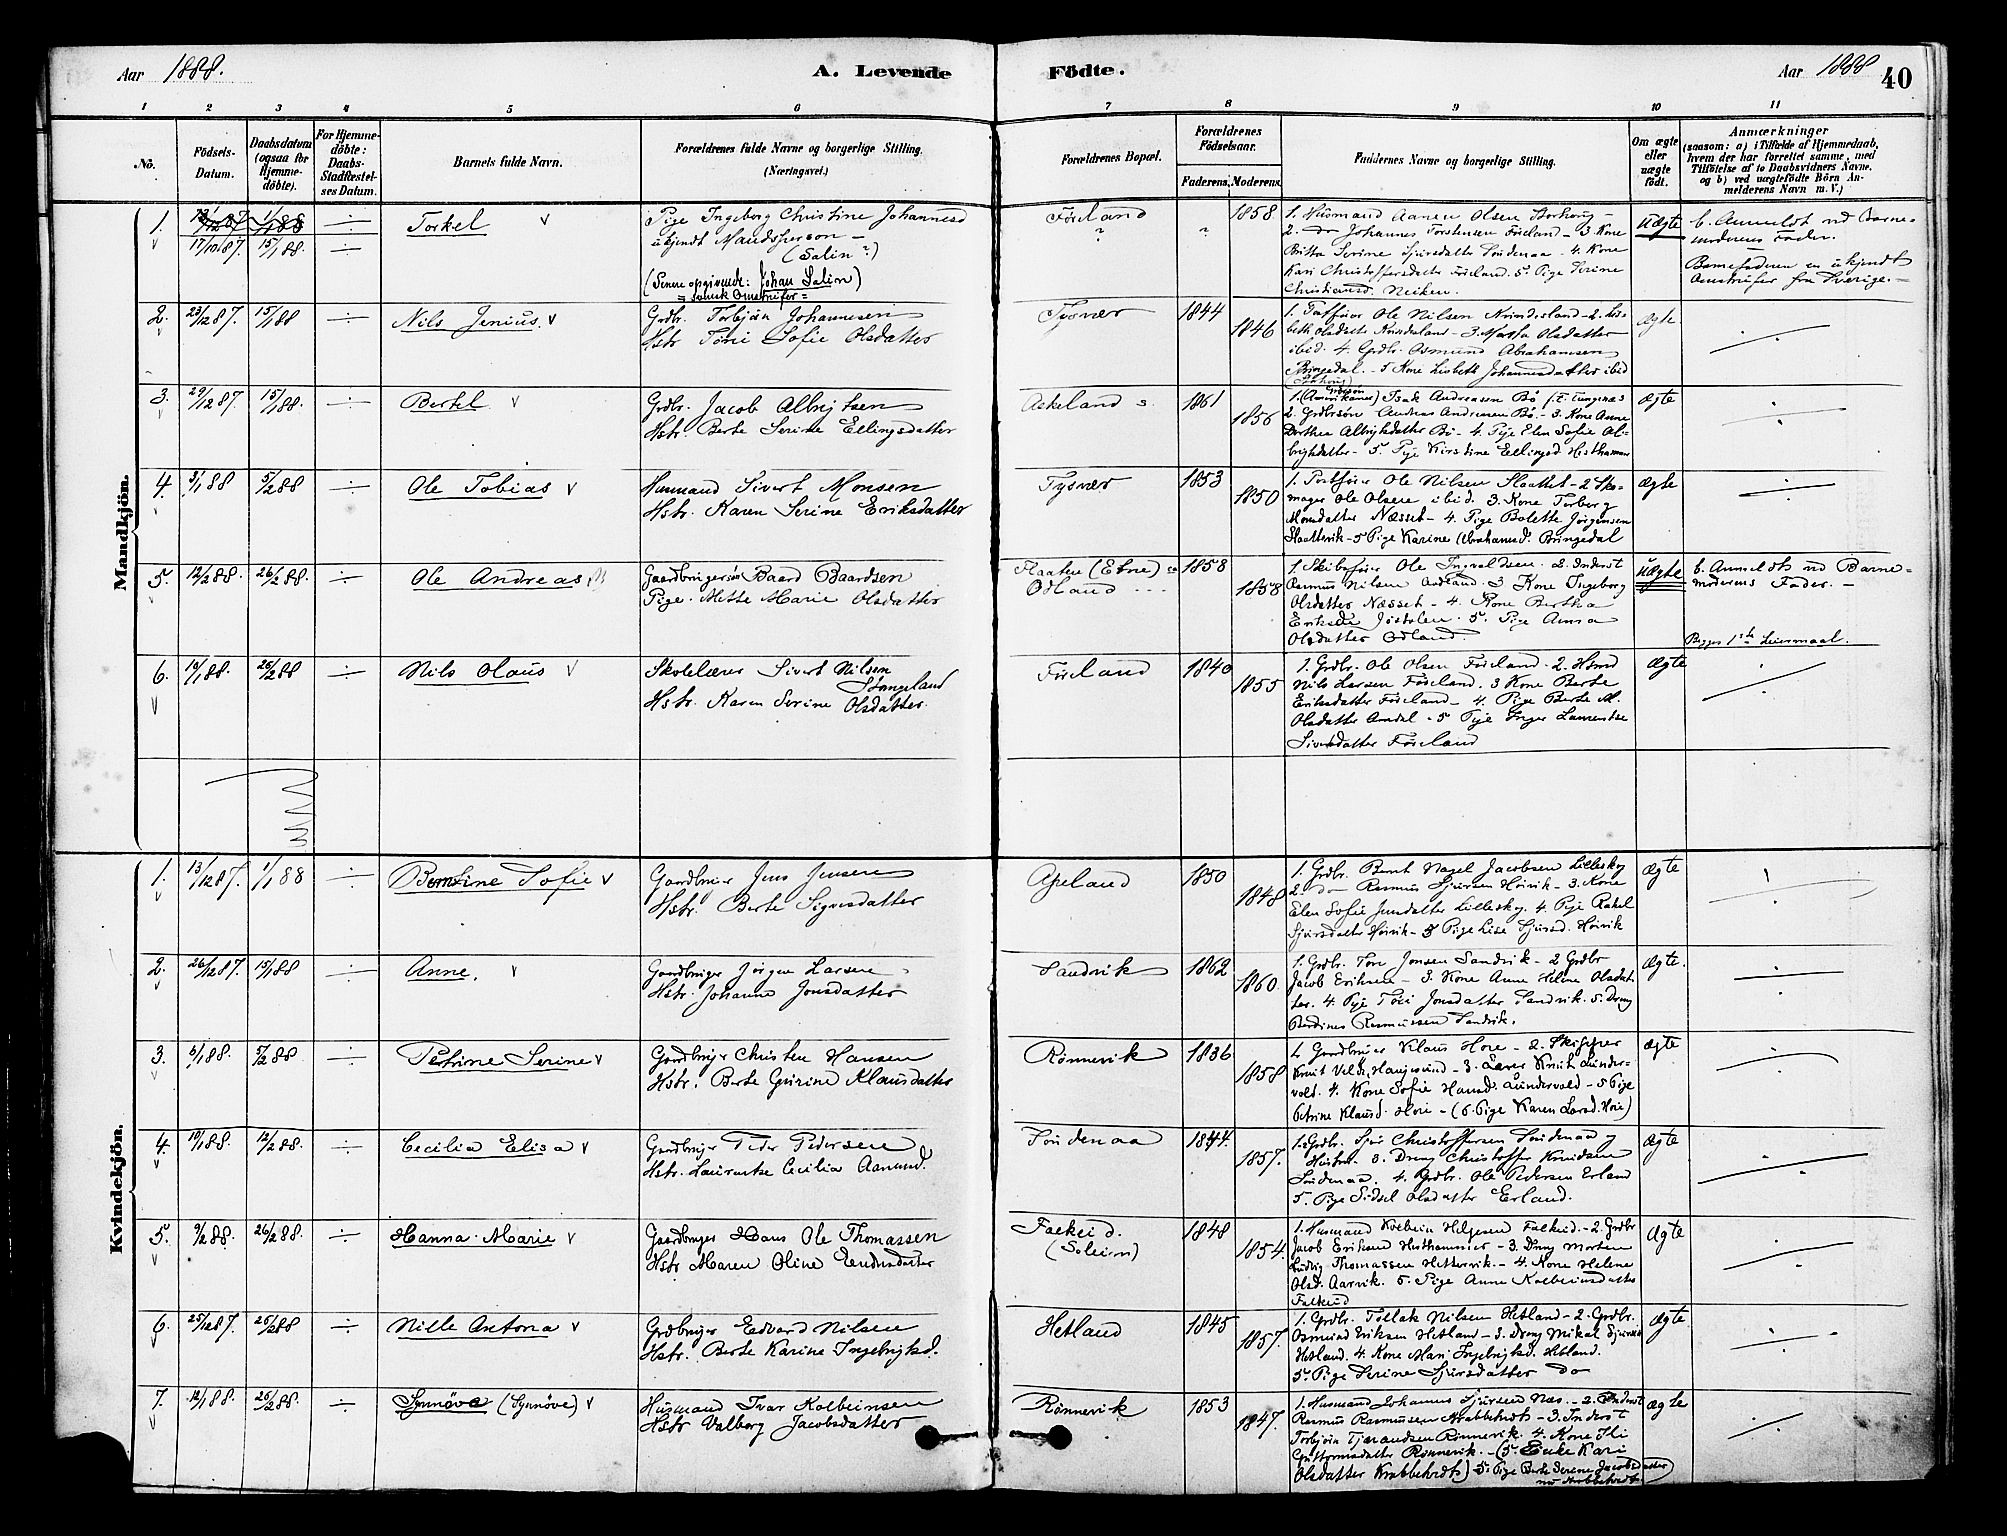 Aar 1888. A. Levende Födte. Aar 1888 40
1 2 3 4 5 6 7 8 9 10 11
No.
Födsels-Datum.
Daabsdatum (ogsaa for Hjemme-döbte).
For Hjemme-döbte: Daabs-Stadfæstel-ses Datum.
Barnets fulde Navn.
Forældrenes fulde Navne og borgerlige Stilling.
(Næringsvei.)
Forældrenes Bopæl.
Forældrenes Födselsaar.
Faderens. Moderens.
Faddernes Navne og borgerlige Stilling.
Om ægte eller uægte födt.
Anmærkninger
(saasom: a) i Tilfælde af Hjemmedaab,
hvem der har forrettet samme, med
Tilföielse af to Daabsvidners Navne,
og b) ved uægtefödte Börn An-
melderens Navn m. V.)
Mandkjön.
1. 13/12 87. 1/1 88 ÷ Torkel v
17/10 87. 15/1 88. ÷
Pige Ingeborg Christine Johannesd
ukjendt Mandsperson —
(Salin?)
(Senere opgivende: Johan Salin)
= svensk Omstreifer =
Föreland
" " 1858
1. Husmand Aanen Olsen Storhoug –
2. do Johannes Torstensen Föreland – 3 Kone
Britha Serine Sjursdatter Söndenaa – 4. Kone
Kari Christoffersdatter Föreland. 5. Pige Serine
Christiansd.
Uægte
b. Anmeldt ved Barne-
moderens Fader.
Barnefaderen en ukjendt
Omstreifer fra Sverige. –
2. 23/12 87. 15/1 88 ÷ Nils Jenius v
Grdbr. Torbjön Johannesen
Hstr Töri Sofie Olsdatter
Tysvær
1844 1846
1. Ole Nilsen
ibid. 4. Grdbr. Osmund Abrahamsen
Bringedal. – 5 Kone Lisbeth Johannesdatter ibid
Ægte
3. 29/12 87. 15/1 88 ÷ Bertel v
Grdbr. Jacob Albrigtsen
Hstr. Berte Serine Ellingsdatter
Askeland s.
1861 1856
1. Isak Andreasen Bö
2. Grdbrsön Andreas Andreasen Bö. – 3. Kone Anne
Dorthea Albrightsdatter Bö – 4. Pige Elen Sofie Al-
brightsdatter – 5. Pige Kirstine Ellingsd Hesthammer
Ægte
4. 3/1 88 5/2 88 ÷ Ole Tobias v
Husmand Sivert Monsen
Hstr. Karen Serine Eriksdatter
Tysvær
1853 1850
1. Postförer Ole Nilsen Slaattet – 2 Sko-
mager Ole Olsen ibid. 3. Kone Torberg
Monsdatter Næsset – 4. Pige Bolette Jörgensen
Slaattevik – 5 Pige Karine Abrahamsd. Bringedal
Ægte
5. 12/2 88. 26/2 88. ÷ Ole Andreas
Gaardbrugersön Baard Baardsen
Pige. Mette Marie Olsdatter
Flaaten (Etne)
Odland ...
1858 1858
1. Skibsförer Ole Ingvaldsen. 2. Inderst
Rasmus Nilsen 3 Kone Ingeborg
Olsdatter Næsset – 4. Kone Bertha
Eriksen 5. Pige Anna
Olsdatter Odland.
Uægte
b. Anmeldt ved Barne-
moderens Fader. –
Begges 1ste Leiermaal.
6. 10/1 88. 26/2 88 ÷ Nils Olaus v
Skolelærer Sivert Nilsen
Stangeland
Hstr. Karen Serine Olsdatter.
Föreland
1840 1855
1. Grdbr. Ole Olsen Föreland. 2. Hsmd
Nils Larsen Föreland. 3 Kone Berte
Eriksdatter Föreland – 4. Pige Berte M.
Olsdatter – 5 Pige Inger Laurentse
Sivertsdatter Föreland
Ægte
Kvindekjön.
1. 13/12 87. 1/1 88 ÷ Berntine Sofie v
Gaardbruger Jens Jensen
Hstr. Berte Signesdatter
Apeland
1850 1848
1. Grdbr. Bernt Nagel Jacobsen Lilleskog
2. do Rasmus Sjursen Höivik – 3. Kone
Elen Sofie Jensdatter Lilleskog. 4. Pige Rakel
Sjursdatter Höivik – 5 Pige Lise Sjursd. Höivik
Ægte
2. 26/12 87. 15/1 88 ÷ Anne. v
Gaardbruger Jörgen Larsen
Hstr. Johanne Jonsdatter
Sandvik
1862 1860.
1. Grdbr. Tore Jonsen Sandvik – 2 Grdbr
Jacob Eriksen – 3. Kone Anne Helene Olsdat-
ter. 4. Pige Töri Jonsdatter Sandvik. 5. Dreng
Berdines Rasmussen Sandvik.
Ægte.
3. 6/1 88. 5/2 88 ÷ Petrine Serine v
Gaardbruger Christen Hansen
Hstr. Berte Gurine Klausdatter
Rönnevik
1836 1858
1. Gaardbruger Klaus Hove – 2. Skipper
Knut Velde, Haugesund – 3. Lærer Knut Lunder-
vold. 4. Kone Sofie Hansd. Lundervold – 5 Pige
Petrine Klausd. Hove – (6. Pige Karen Larsd. Hove)
Ægte
4. 10/1 88. 12/2 88. ÷ Cecilia Elisa v
Gaardbruger Peder Pedersen
Hstr. Laurentse Cecilia Aanensd.
Söndenaa
1844. 1857.
1. Grdbr. Sjur Christoffersen Söndenaa og
Hustru. 3. Dreng Christoffer Knudsen
Söndenaa. 4. Grdbr. Ole Pedersen Erland
5. Pige Sidsel Olsdatter Erland.
Ægte
5. 9/2 88. 26/2 88. ÷ Hanna Marie v
Gaardbruger Hans Ole Thomassen
Hstr Maren Oline Endresdatter
Falkeid.
(Soleim)
1848 1854.
1. Husmand Kolbein Helgesen Falkeid. – 2. Grdbr
Jacob Eriksen Hesthammer – 3. Dreng Morten
Ludvig Thomassen Hettervik – 4. Kone Helene
Olsd. Aarvik. 5. Pige Anne Kolbeinsdatter
Falkeid
Ægte
6. 25/12 87. 26/2 88 ÷ Nille Antona v
Grdbruger Edvard Nilsen
Hstr. Berte Karine Ingebrigtsd.
Hetland
1845 1857.
1. Grdbr. Tollak Nilsen Hetland – 2. Grdbr.
Osmund Eriksen Hetland – 3. Dreng Mikal Sjursen
Hetland. 4. Kone Mari Ingebrigtsd. Hetland.
5. Pige Serine Sjursdatter do
Ægte
7. 12/1 88. 26/2 88. ÷ Synnöve (Synnöve) v
Husmand Ivar Kolbeinsen
Hstr Valborg Jacobsdatter
Rönnevik
1853 1847.
1. Husmand Johannes Sjursen Næs. – 2. Inderst
Rasmus Rasmussen Krabbetveit – 3. Inderst
Torbjön Tjærandsen Rönnevik. 4. Kone Eli
Guttormsdatter Rönnevik. – (5. Enke Kari
Olsdatter Krabbetvedt) 5. Pige Berte Serene Jacobsdatter
Krabbetvedt.
Ægte